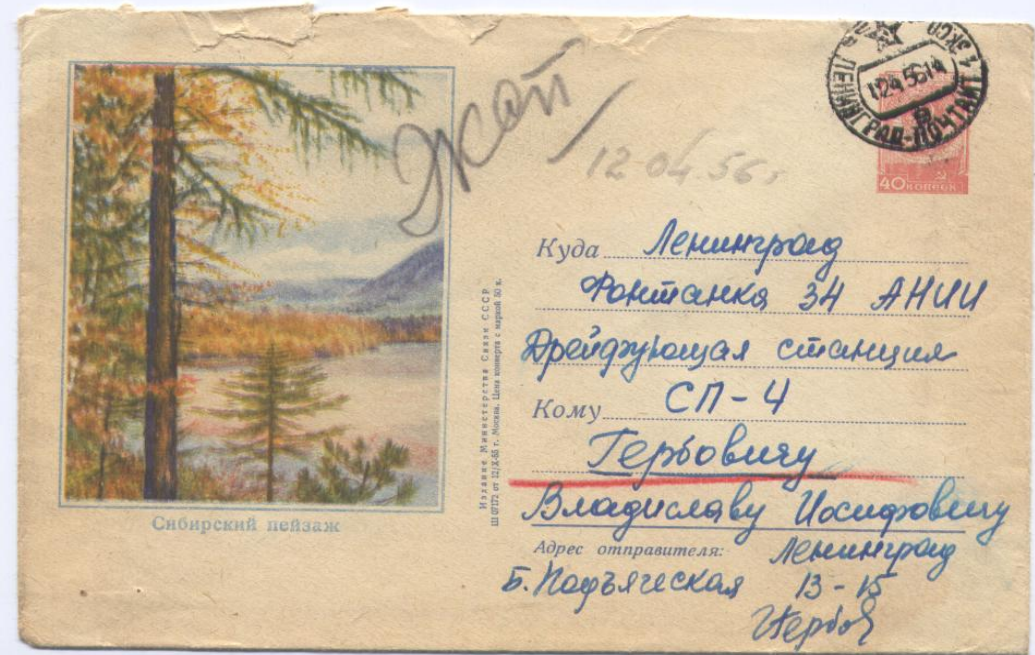 12 04 56 г
ЛЕНИНГРАД-ПОЧТАМТ
40 КОПЕЕК
Куда Ленинград
Фонтанка 34 АНИИ
Дрейфующая станция
Кому СП-4
Гербовичу
Владиславу Иосифовичу
Адрес отправителя: Ленинград
Б. Подъяческая 13-15
Сибирский пейзаж
Издание Министерства Связи СССР
г. Москва. Цена конверта с маркой 50 к.